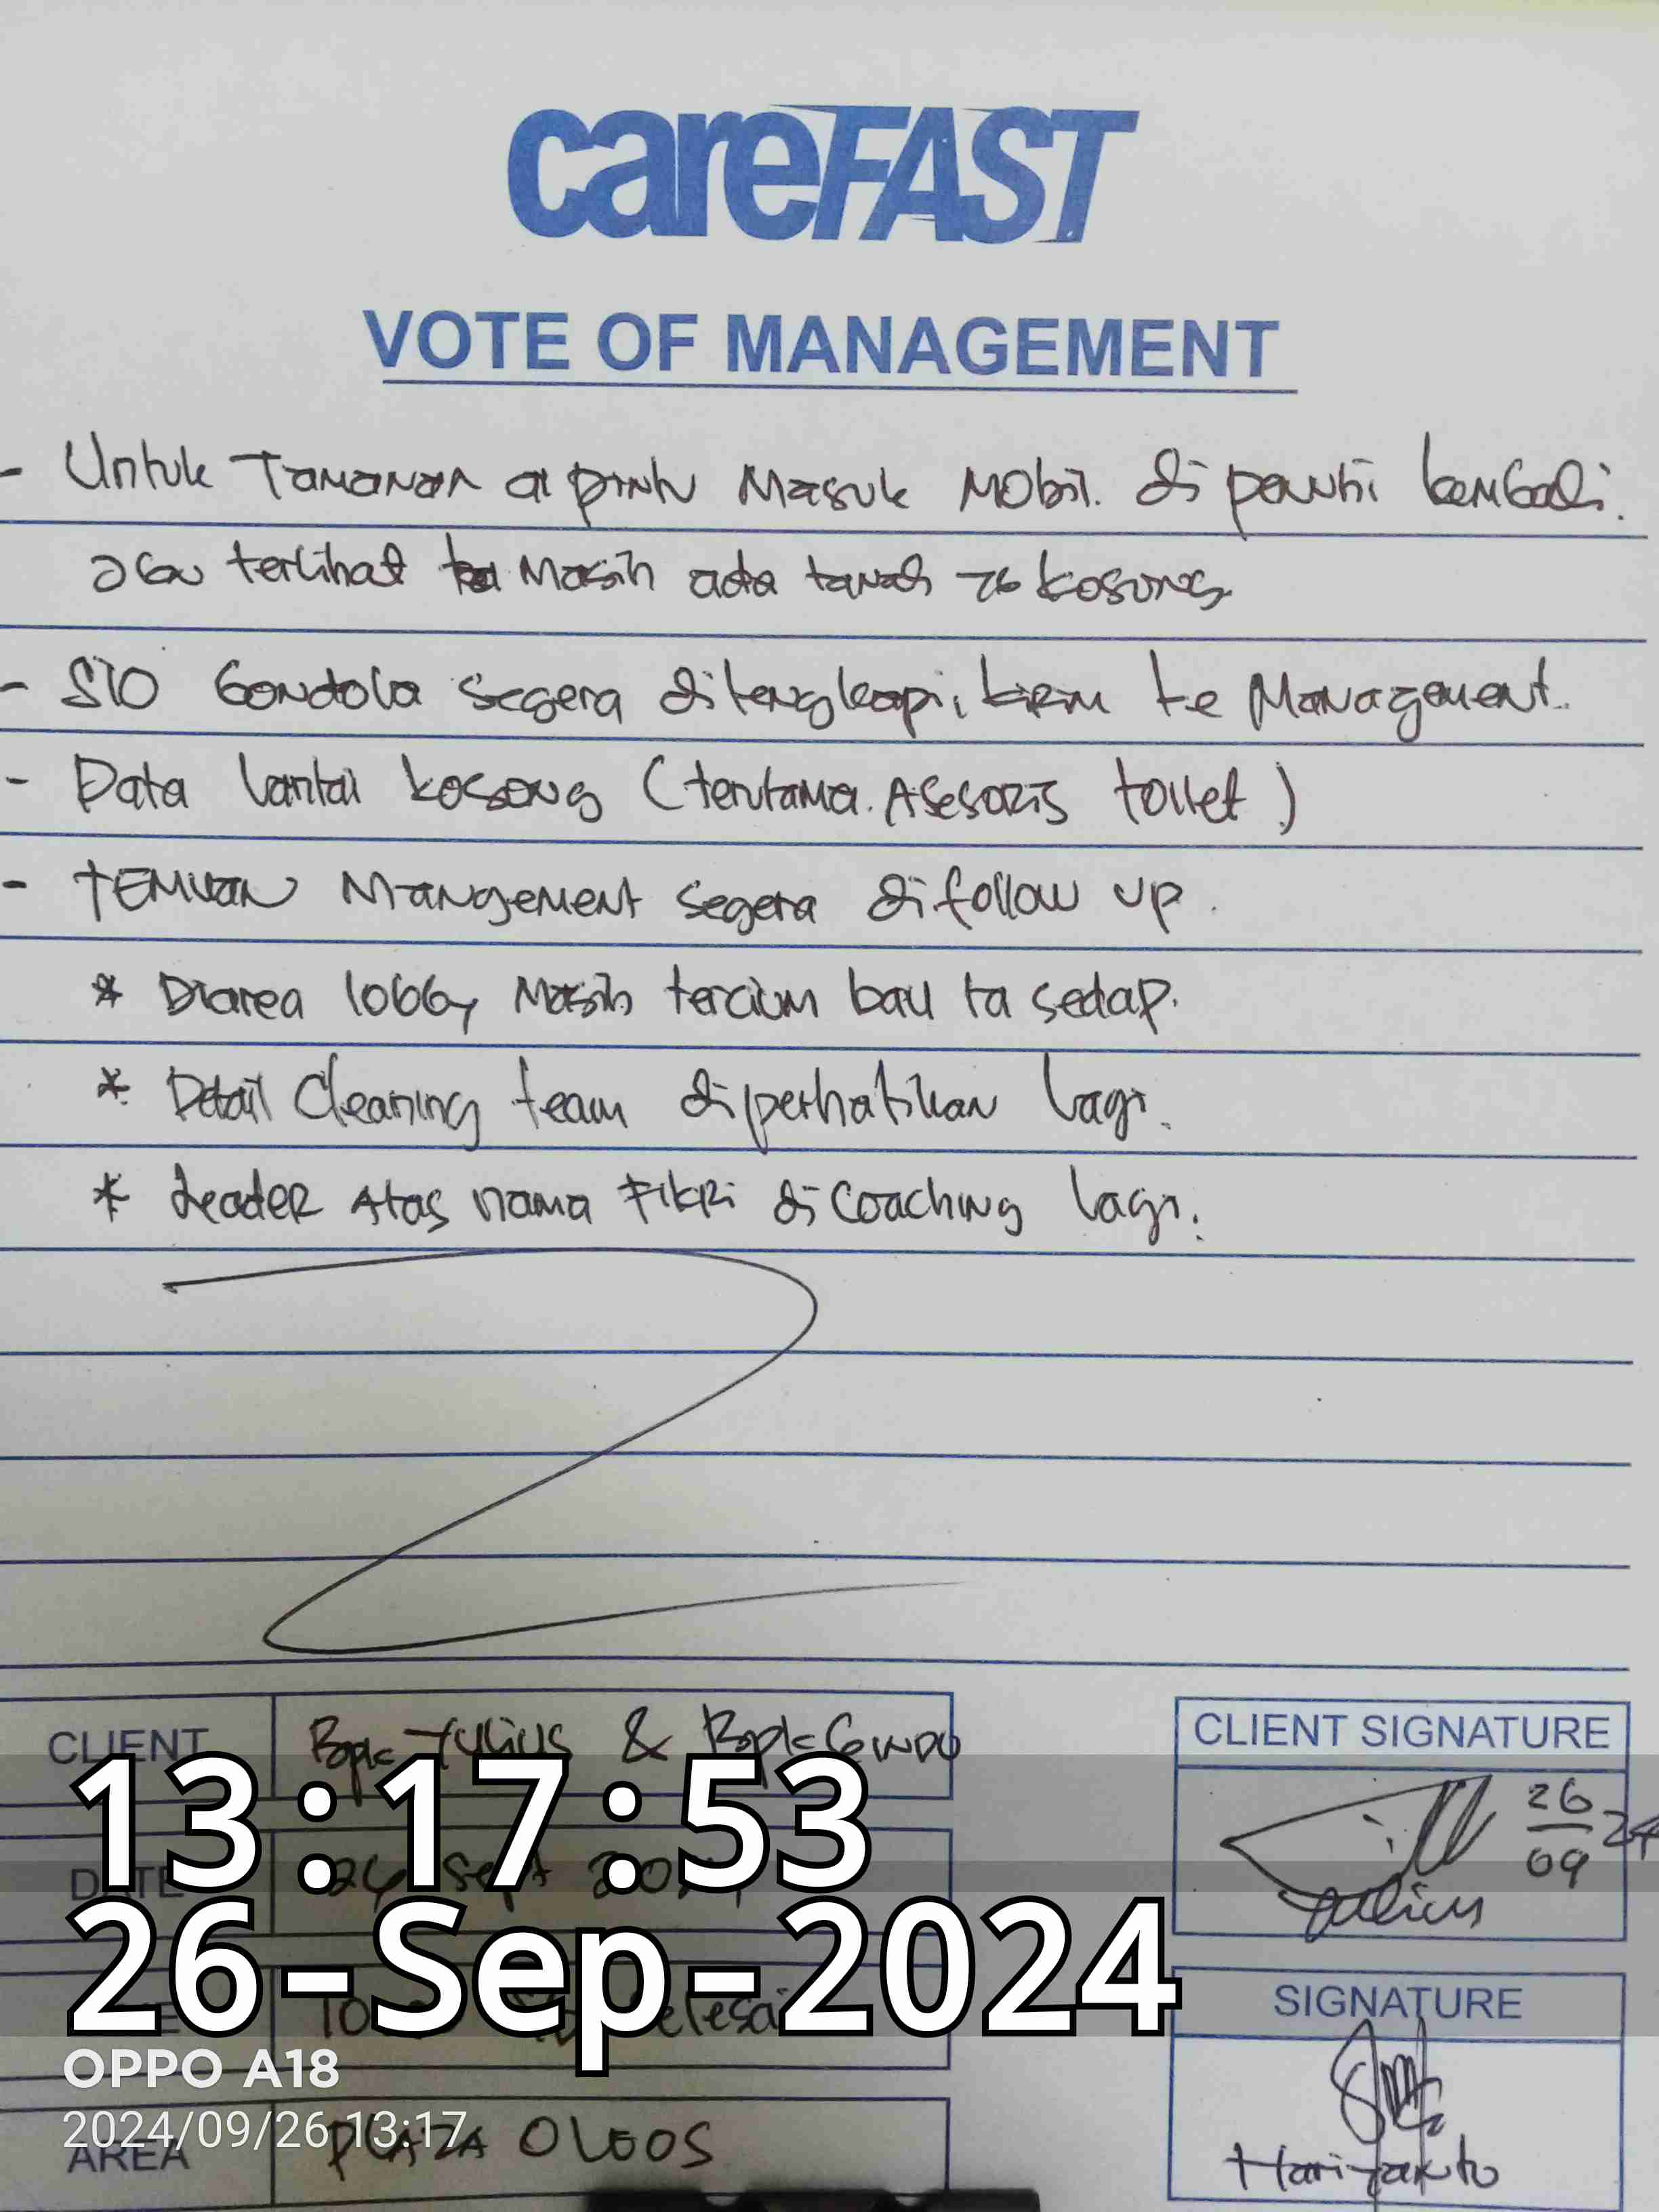 careFAST
VOTE OF MANAGEMENT
- Untuk Tamanan di pintu Masuk Mobil. di penuhi kembali.
terlihat Masih ada tanah yg kosong.
- SIO Gondola segera dilengkapi, kirim ke Management.
- Data lantai kosong (terutama. Asesoris toilet)
- TEMUAN Mangement segera di follow up.
* Diarea lobby Masih tercium bau ta sedap.
* Detail Cleaning team diperhatikan lagi.
* Leader Atas nama Fikri di coaching lagi.
CLIENT Bpk Yulius & Bpk
DATE Sept
selesai
AREA PLAZA OLEOS
CLIENT SIGNATURE
26
09 24
SIGNATURE
Hariyanto
13:17:53
26-Sep-2024
OPPO A18
2024/09/26 13:17